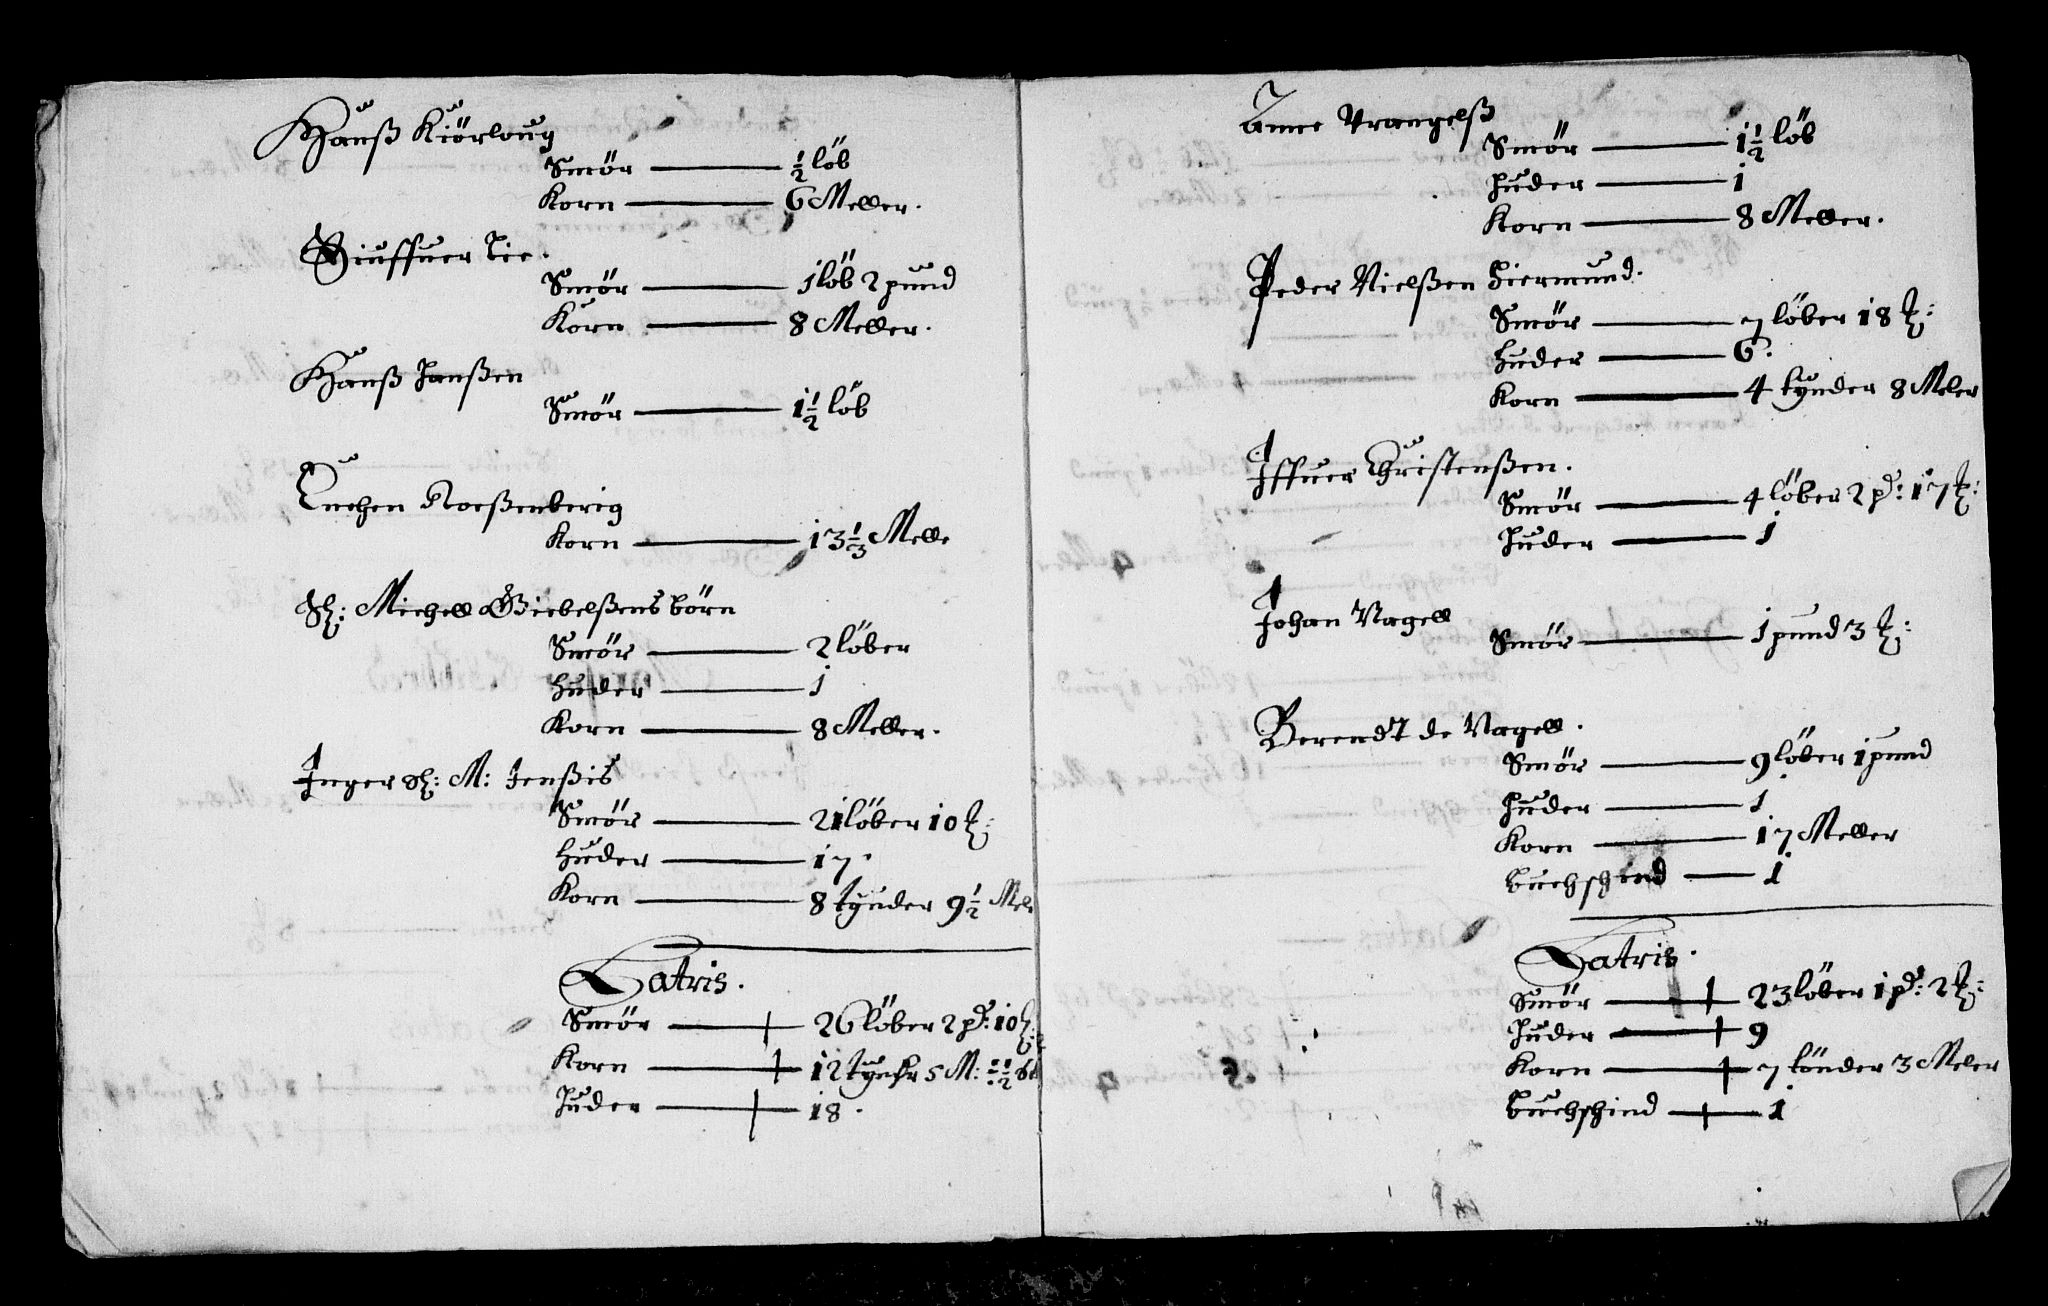 Hanß Kiörloug
Smör — ½ löb
Korn — 6 Meller.
Siuffuer Lie.
Smör — 1 löb 2 pund
Korn — 8 Meller.
Hanß Hanßen
Smör — 1½ löb
Luchen Roeßenberig
Korn — 13⅓ Melle
Sl: Michell Giebelßens börn
Smör — 2 löber
Huder — 1
Korn — 8 Meller.
Inger Sl: M: Jenßis
Smör — 21 löber 10 ℔:
Huder — 17.
Korn — 8 tynder 9½ Mele
Latris.
Smör — 26 löber 2 pd: 10 ℔:
Korn — 12 tynder 5 M:
Huder — 18.
Anne Vrangelß
Smör — 1½ löb
Huder — 1
Korn — 8 Meller.
Peder Nielßen Hiermund.
Smör — 7 löber 18 ℔:
Huder — 6.
Korn — 4 tynder 8 Meler
Iffuer Christenßen.
Smör — 4 löber 2 pd: 17 ℔:
Huder — 1
Johan Nagell
Smör — 1 pund 3 ℔:
Berendt de Nagell.
Smör — 9 löber 1 pund
Huder — 1
Korn — 17 Meller
Buchschind — 1
Latris.
Smör — 23 löber 1 pd: 2 ℔:
Huder — 9
Korn — 7 tönder 3 Meler
Buchschind — 1